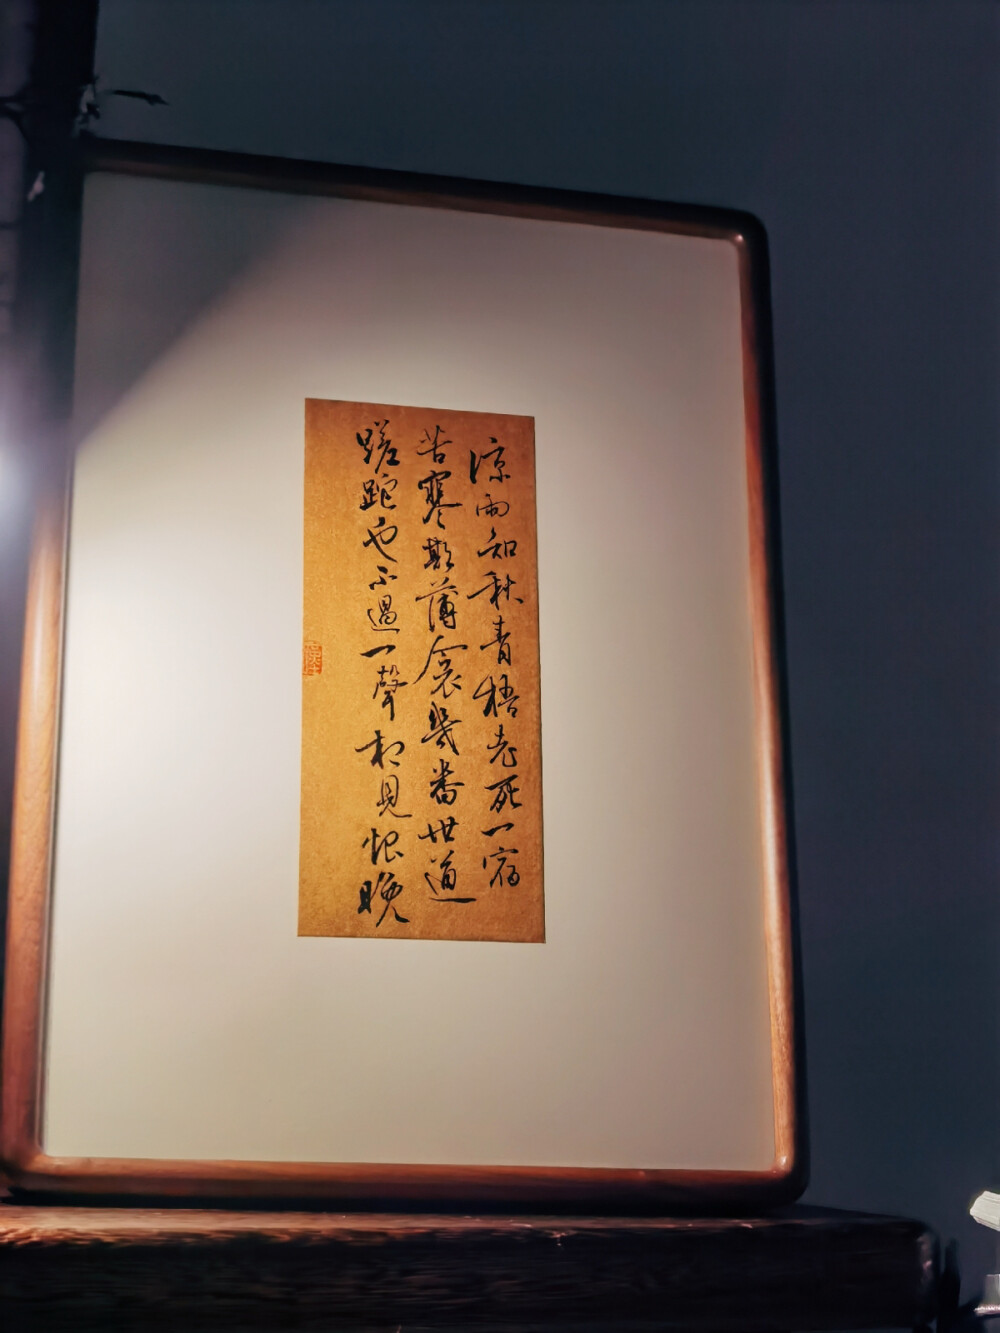 涼雨知秋青梧老死一宿
苦寒欺薄衾幾番世道
蹉跎也不過一聲相見恨晚